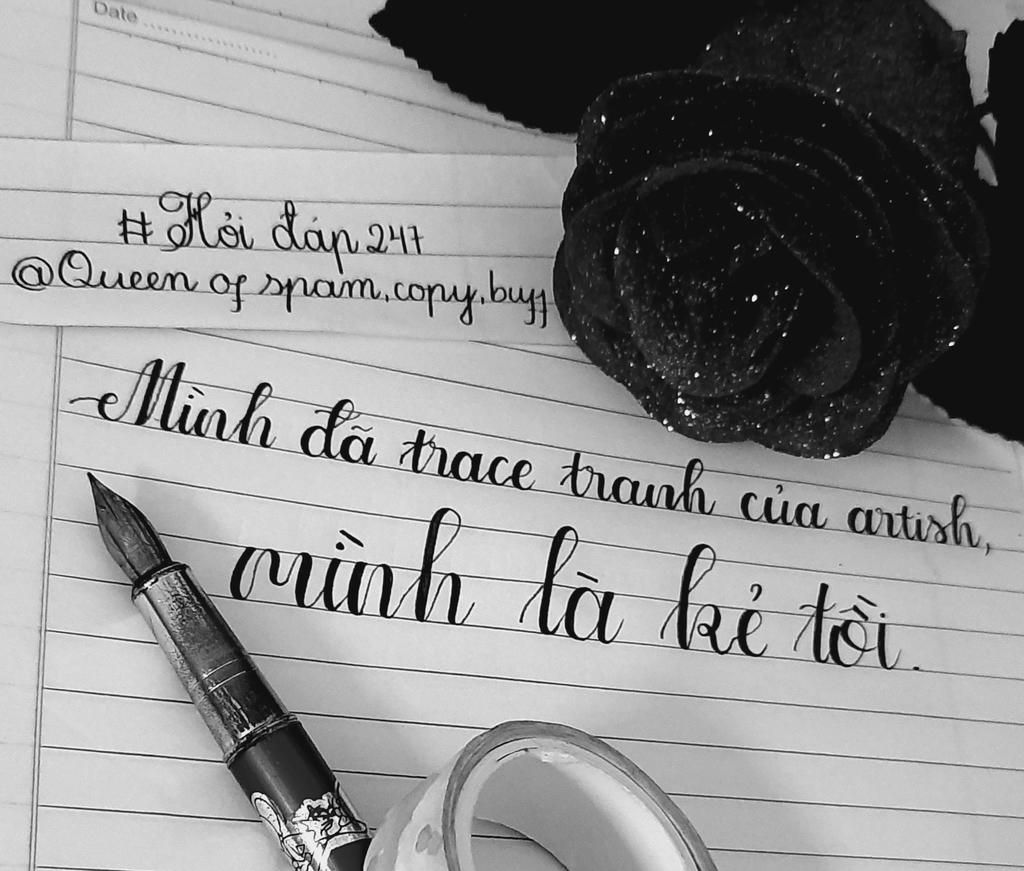 Date
#Hỏi đáp 247
@Queen of spam, copy, buff
Mình đã trace tranh của artish,
mình là kẻ tồi.